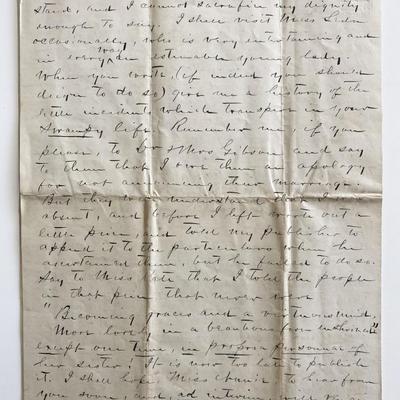 stand, and I cannot sacrifice my dignity
enough to say. I shall visit Miss
occasionally, who is very entertaining and
in every way an estimable young lady.
When you write, (if indeed you should
deign to do so) give me a history of the
little incidents which transpire in your
Swampy life. Remember me, if you
please, to Dr & Mrs Gibson, and say
to them that I owe them an apology
for not announcing their marriage.
But they will understand that I was
absent, and before I left wrote out a
little piece, and told my publisher to
append it to the particulars when he
ascertained them, but he failed to do so.
Say to Miss Kate that I told the people
in that piece that never were
"Becoming graces and a virtuous mind,
More lovely in a beauteous form enshrined"
except one time, in propria personae of
her sister! It is now too late to publish
it. I shall hope Miss to hear from
you soon, and ad interim